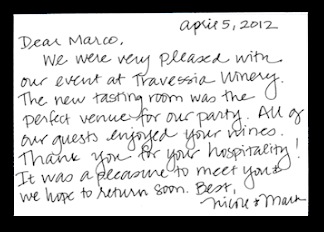 april 5, 2012
Dear Marco,
We were very pleased with
our event at Travessia Winery.
The new tasting room was the
perfect venue for our party. All of
our guests enjoyed your wines.
Thank you for your hospitality!
It was a pleasure to meet you &
we hope to return soon. Best,
Nicole & Mark